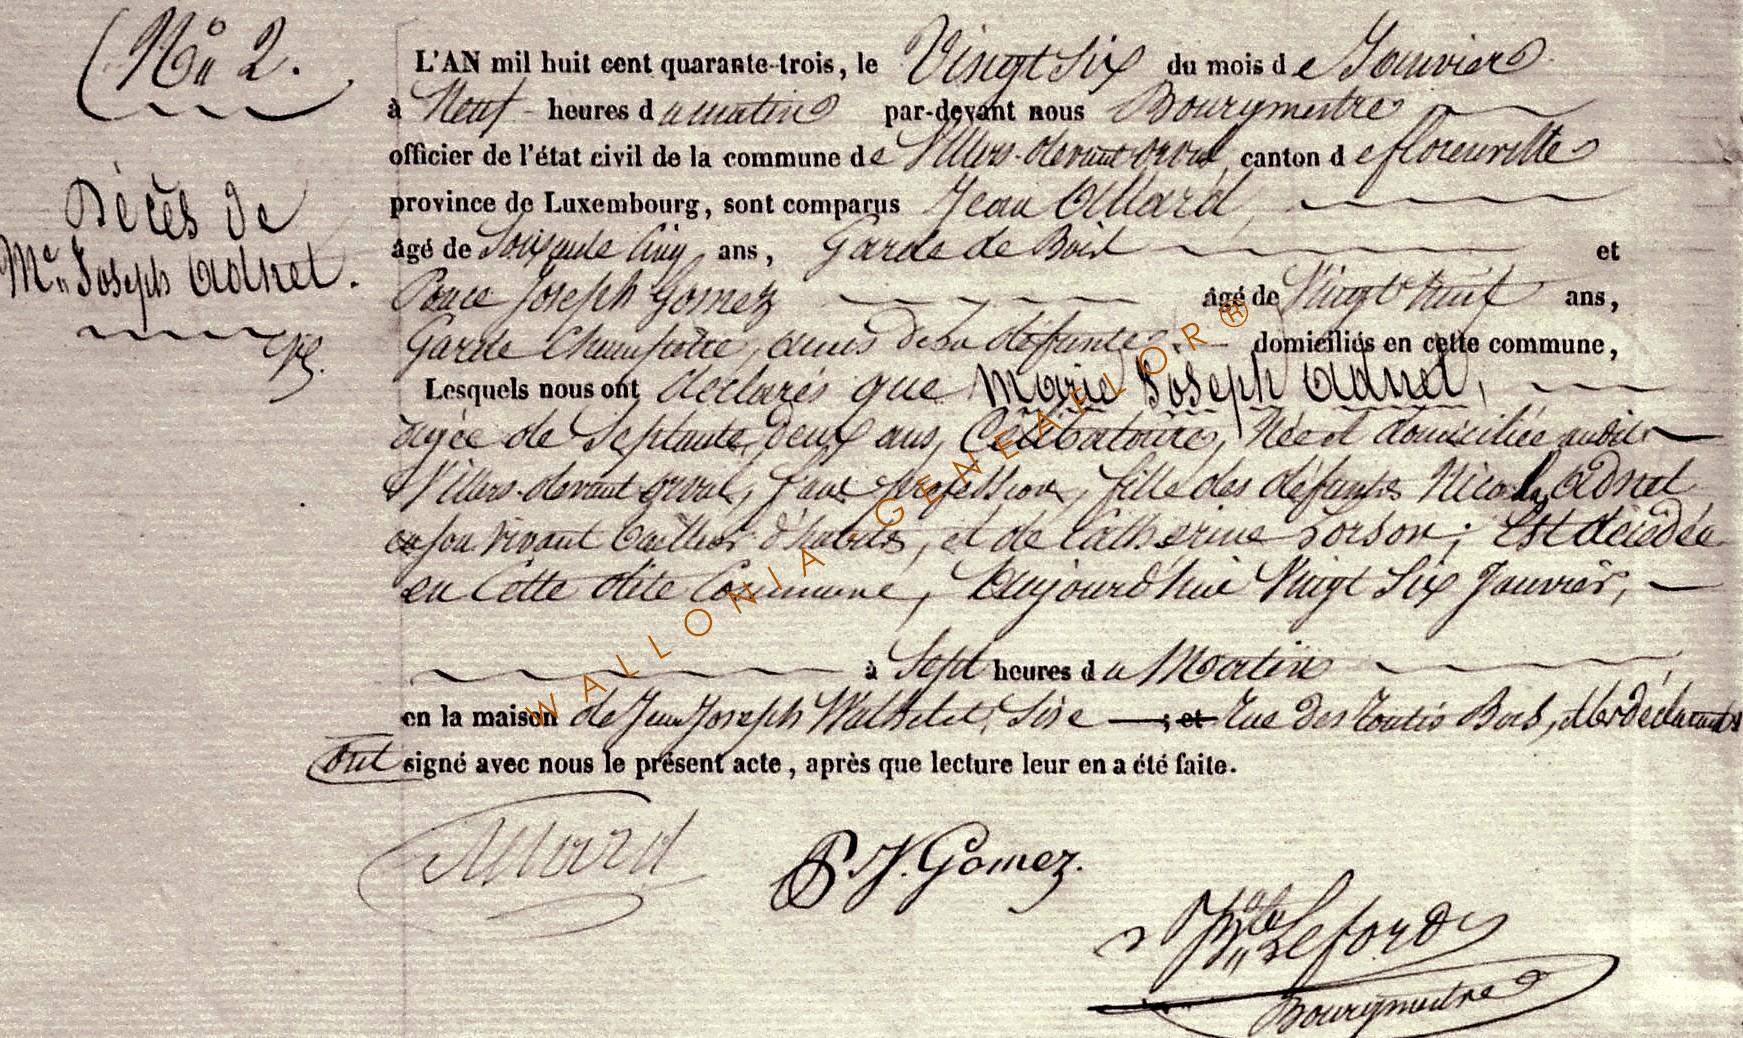 No 2.
L'AN mil huit cent quarante-trois, le Vingt Six du mois de Janvier
à Neuf heures du matin par-devant nous Bourgmestre
officier de l'état civil de la commune de Villers-devant orval, canton de florenville
Décès de
province de Luxembourg, sont comparus Jean Allard,
Me Joseph Adnet.
âgé de Soixante Cinq ans, Garde de Bois et
Ponce Joseph Gomez âgé de Vingt neuf ans,
Garde Champêtre, amis de la défunte, domiciliés en cette commune,
Lesquels nous ont déclarés que Marie Joseph Adnet,
agée de Septante Deux ans, Célibataire, Née et domiciliée audit
Villers-devant orval, sans profession, fille des défunts Nicolas Adnet
en son vivant tailleur d'habits, et de Catherine Lorson; Est décédée
en Cette dite Commune, Aujourd'hui Vingt Six Janvier,
à Sept heures du Matin
en la maison de Jean Joseph Sise ; et rue des Bois, et les déclarants
ont signé avec nous le présent acte, après que lecture leur en a été faite.
Allard
P. J. Gomez.
Leford
Bourgmestre
WALLONIA GENEAFLOR®